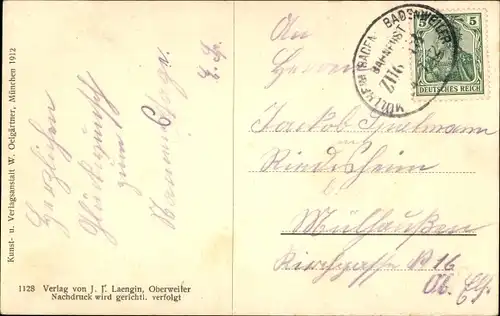 Kunst- u. Verlagsanstalt W. Oelgärtner, München 1912
Herzlichen
Glückwunsch
zum
Namenstage.
An
Herrn
Jackob Spielmann
Riedisheim
b/
Mülhaußen
Kirchgasse № 16
Ob. Els.
MÜLLHEIM (BADEN) - BADENWEILER
BAHNPOST
ZUG
5 5
DEUTSCHES REICH
1128 Verlag von J. J. Laengin, Oberweiler
Nachdruck wird gerichtl. verfolgt